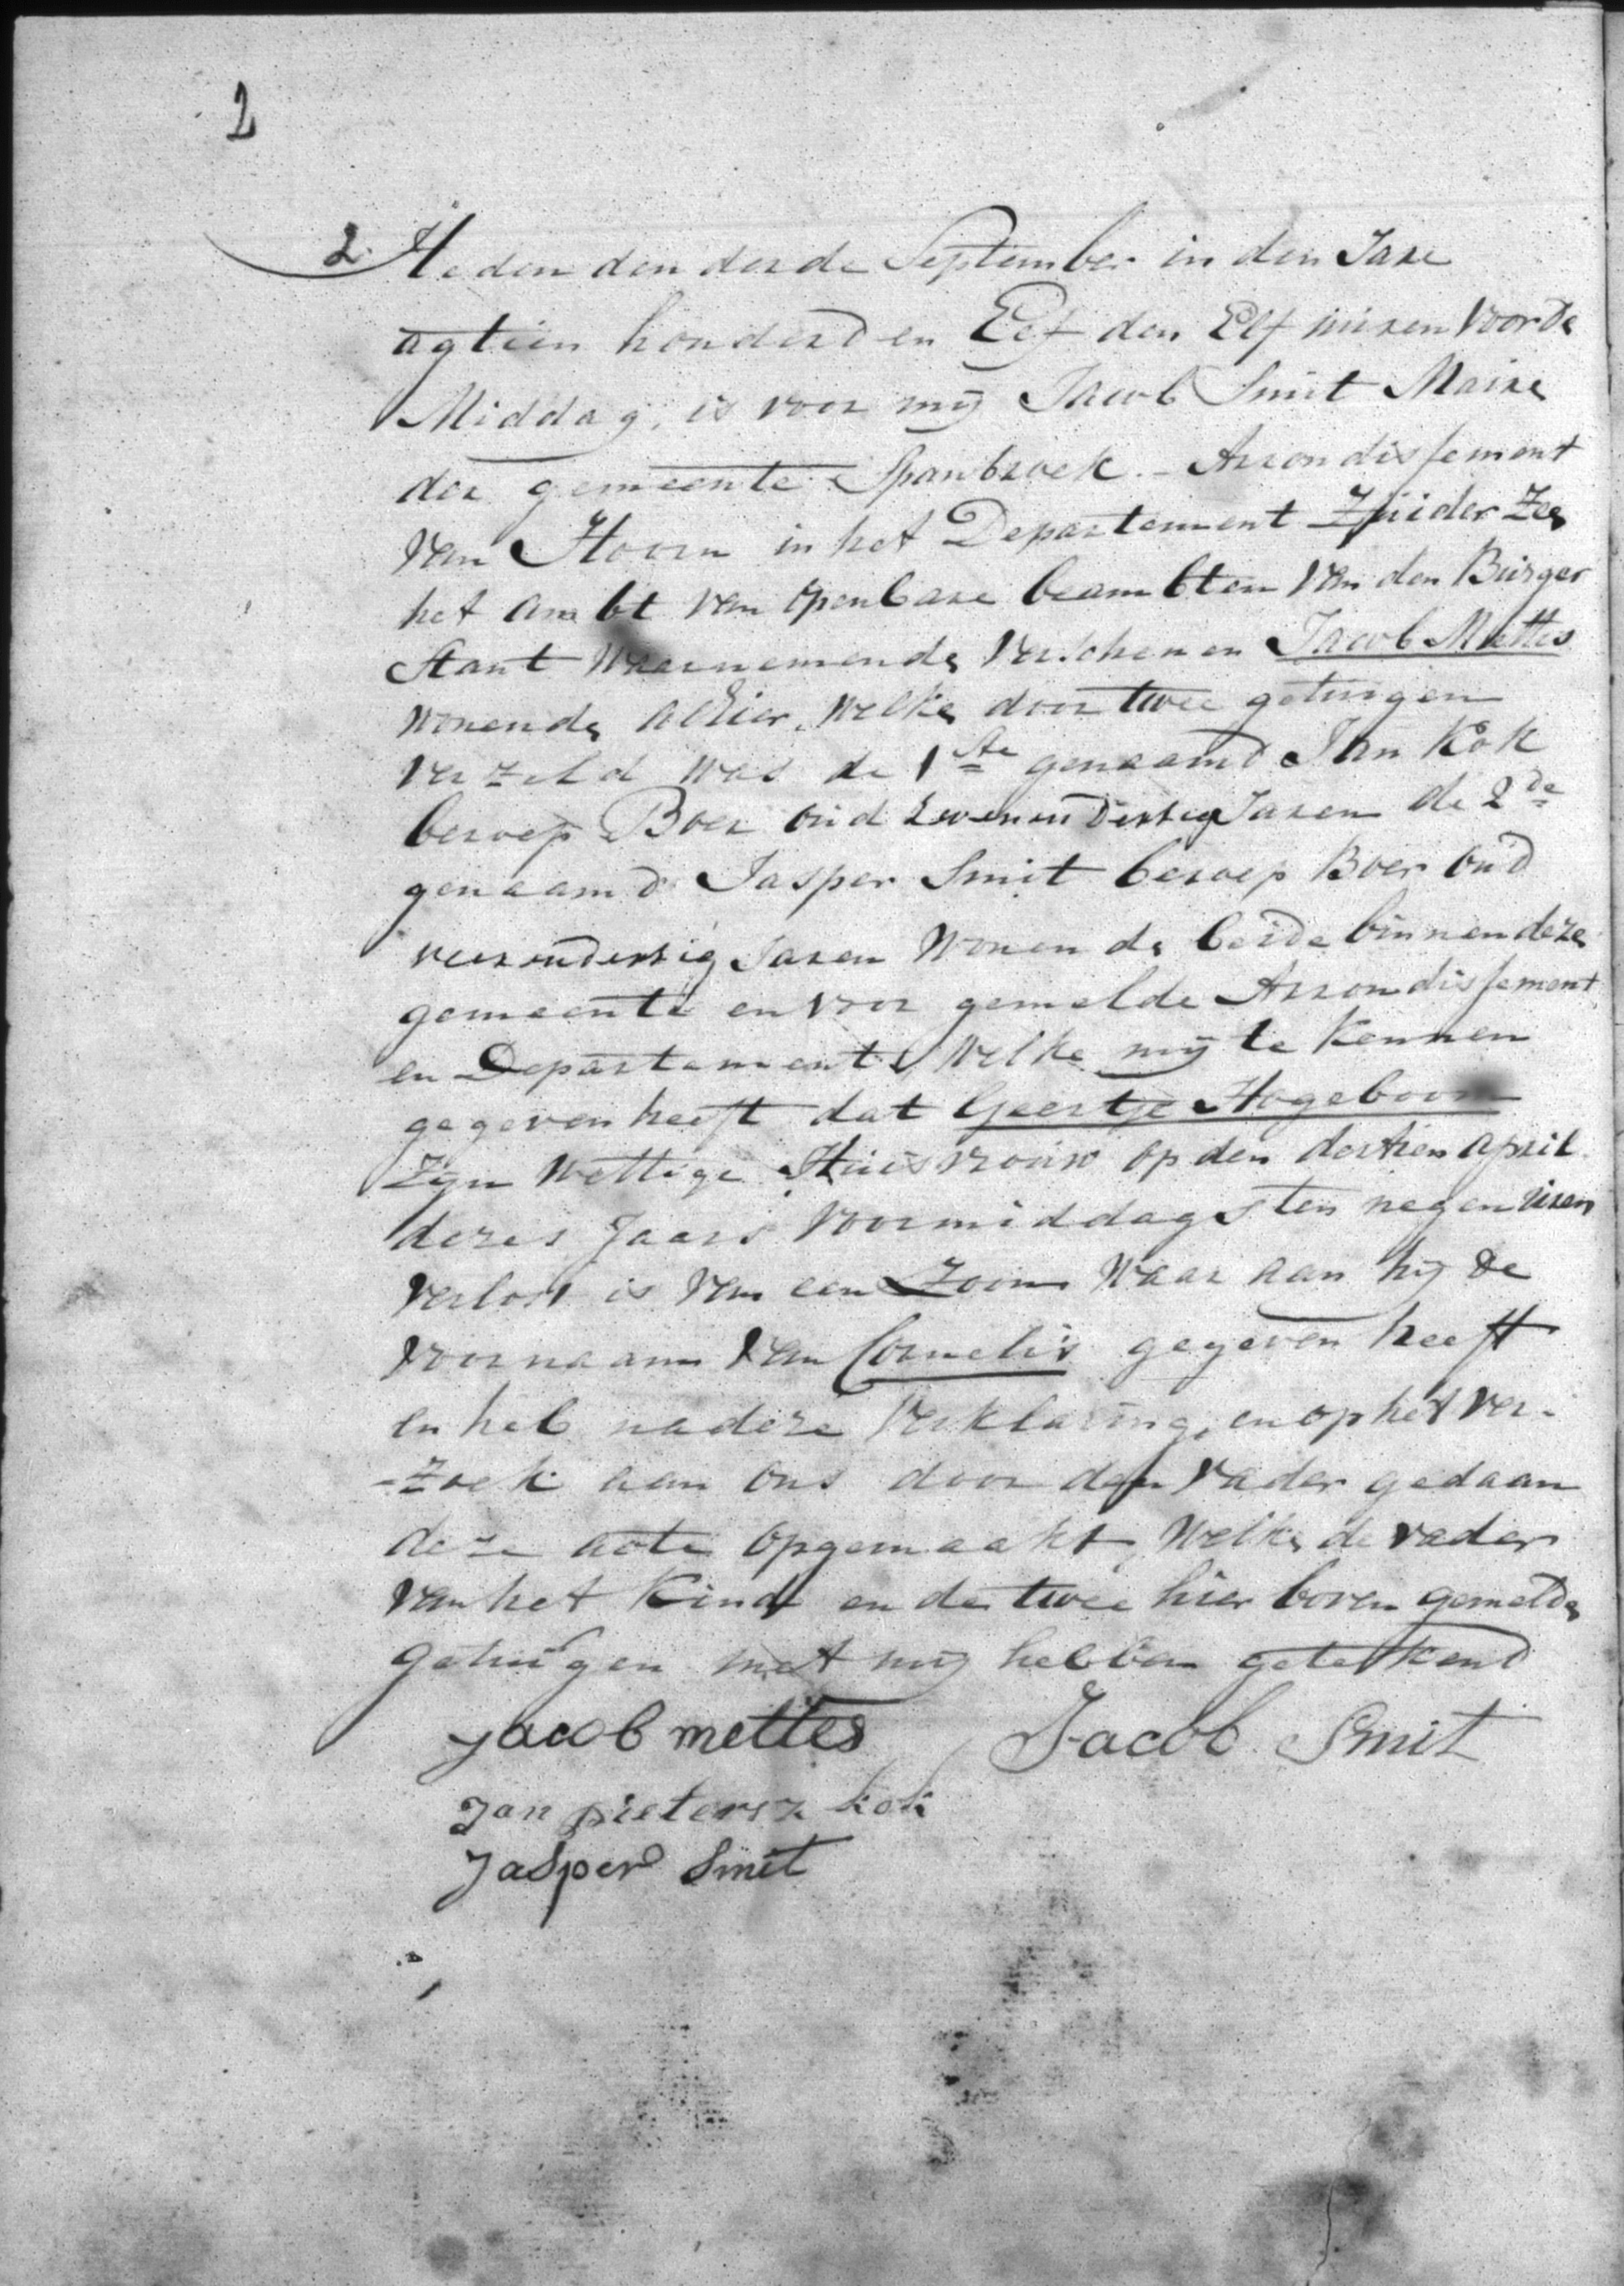 2
2 Heden den derde September in den Jare
agtien honderd en Elf den Elf uuren voor de
Middag, is voor mij Jacob Smit Maire
der gemeente Spanbroek - Arrondissement
van Hoorn in het Departement Zuider Zee
het ambt van openbare beambten van den Burger
Stant waernemende verschenen Jacob Mettes
wonende alhier, welke door twee getuigen
verzeld was de 1ste genaamd Jan Kok
beroep Boer oud zevenen dertig Jaren de 2de
genaamd Jasper Smit beroep Boer oud
vierendertig Jaren wonende beide binnen deze
gemeente en voor gemelde Arrondissement
en Departement, welke mij te kennen
gegeven heeft dat Geertje Hogeboom
Zijn wettige Huisvrouw op den dertien april
dezes Jaars voormiddags ten negen uren
verlost is van een Zoon waar aan hij de
voornaam van Cornelis gegeven heeft
en heb nadere verklaring, en op het ver-
-zoek aan ons door den vader gedaan
deze acte opgemaakt, welke de vader
van het kind en de twee hier boven gemelde
getuigen met mij hebben getekend
Jacob mettes Jacob Smit
Jan pietersz kok
Jasper Smit